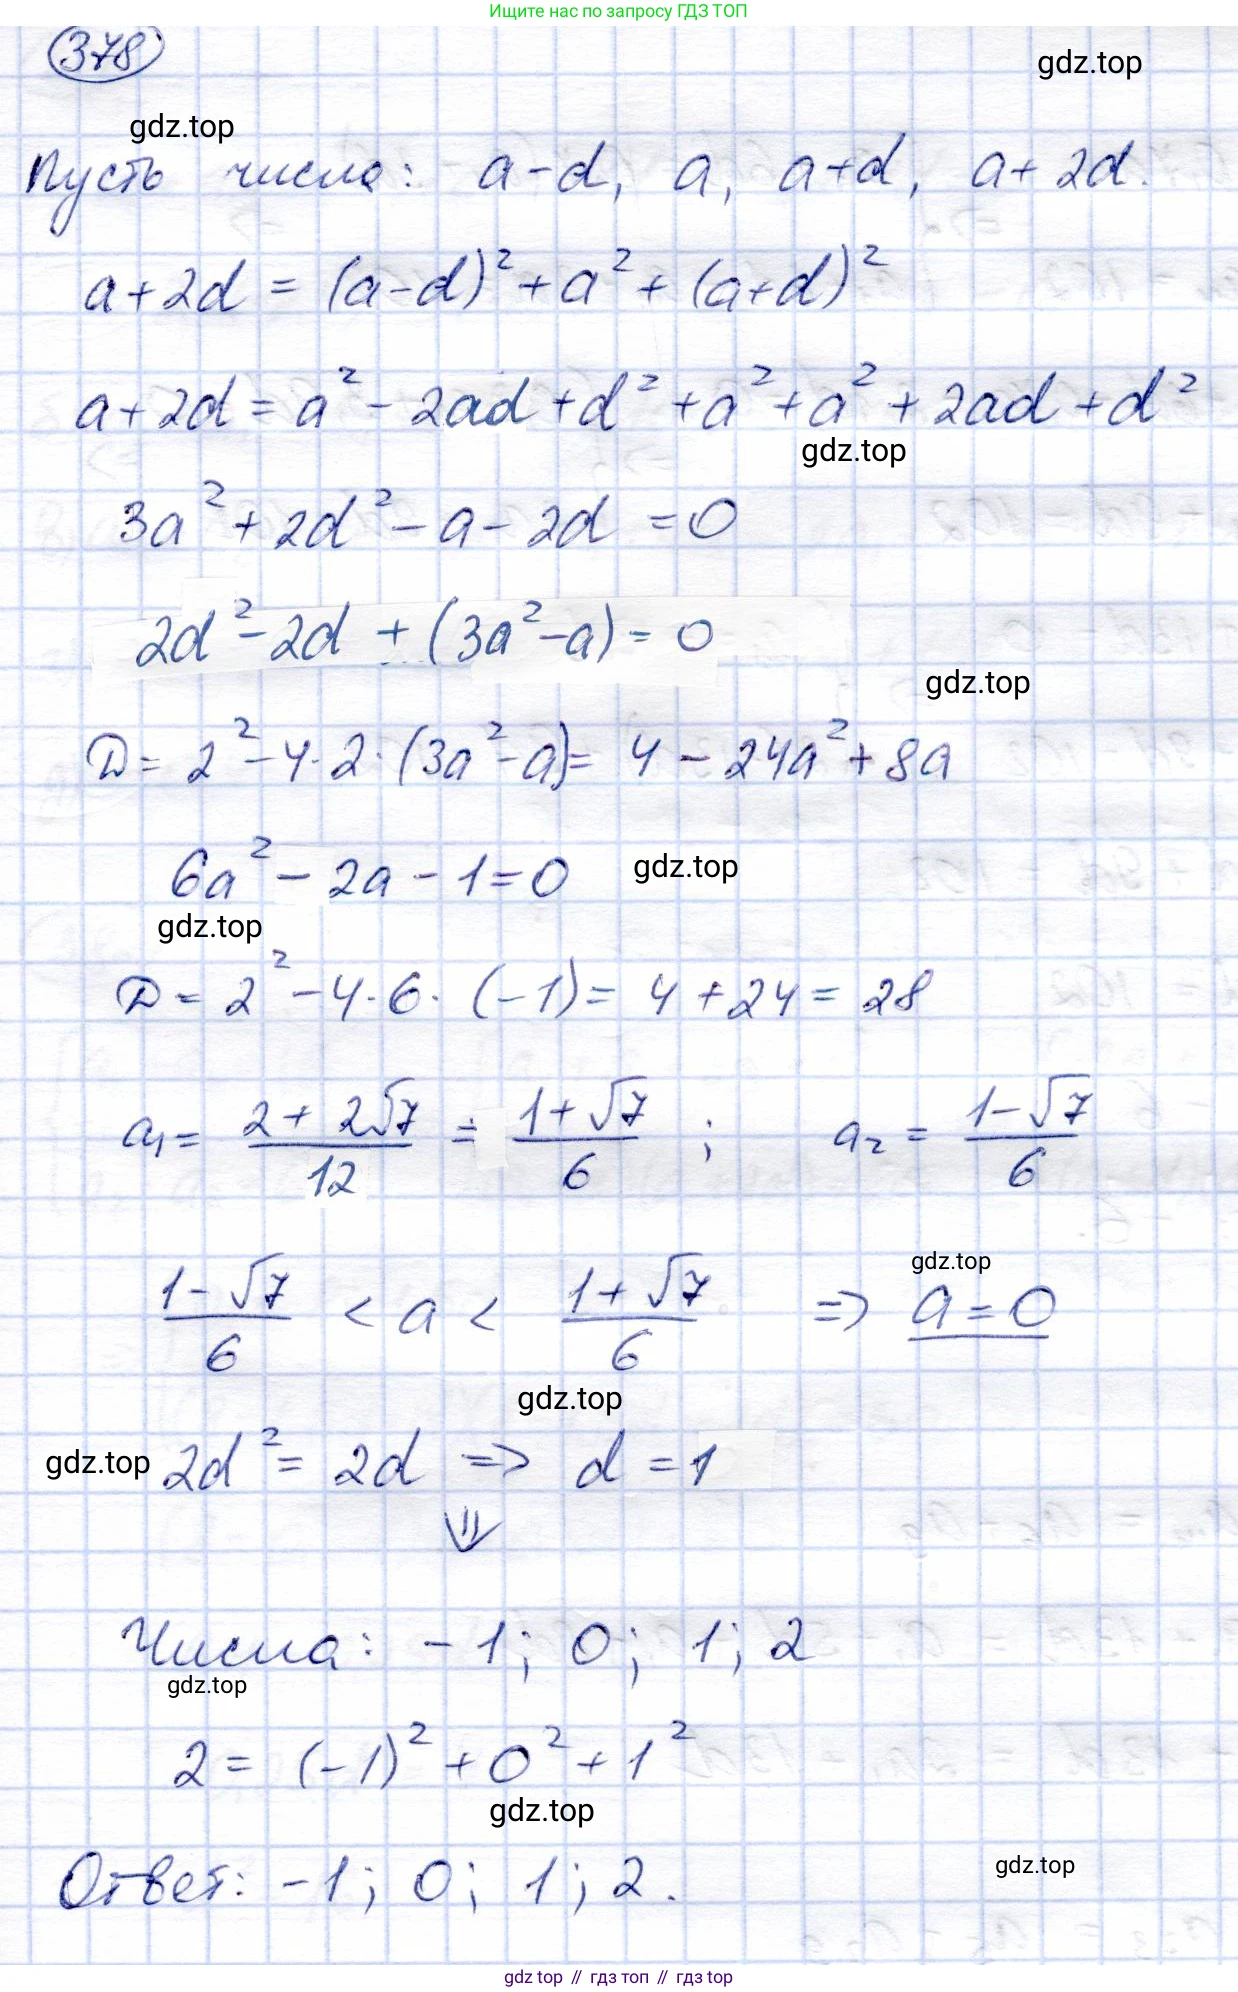 Ищите нас по запросу ГДЗ ТОП
378
gdz.top
gdz.top
Пусть числа: a-d, a, a+d, a+2d.
a+2d = (a-d)² + a² + (a+d)²
a+2d = a² - 2ad + d² + a² + a² + 2ad + d²
gdz.top
3a² + 2d² - a - 2d = 0
2d² - 2d + (3a² - a) = 0
gdz.top
D = 2² - 4·2·(3a² - a) = 4 - 24a² + 8a
6a² - 2a - 1 = 0
gdz.top
gdz.top
D = 2² - 4·6·(-1) = 4 + 24 = 28
a₁ = (2 + 2√7)/12 = (1 + √7)/6 ; a₂ = (1 - √7)/6
gdz.top
(1 - √7)/6 < a < (1 + √7)/6 ⇒ a = 0
gdz.top
gdz.top
2d² = 2d ⇒ d = 1
⇓
Числа: -1; 0; 1; 2
gdz.top
2 = (-1)² + 0² + 1²
gdz.top
gdz.top
Ответ: -1; 0; 1; 2.
gdz top // гдз топ // гдз top